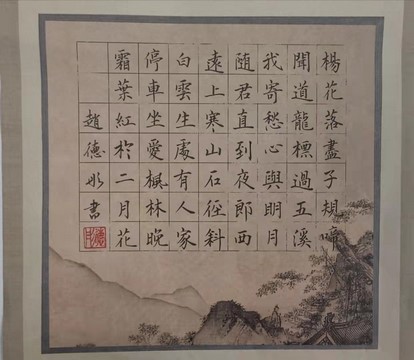 楊花落盡子規啼
聞道龍標過五溪
我寄愁心與明月
随君直到夜郎西
遠上寒山石徑斜
白雲生處有人家
停車坐愛楓林晚
霜葉紅於二月花
趙德書